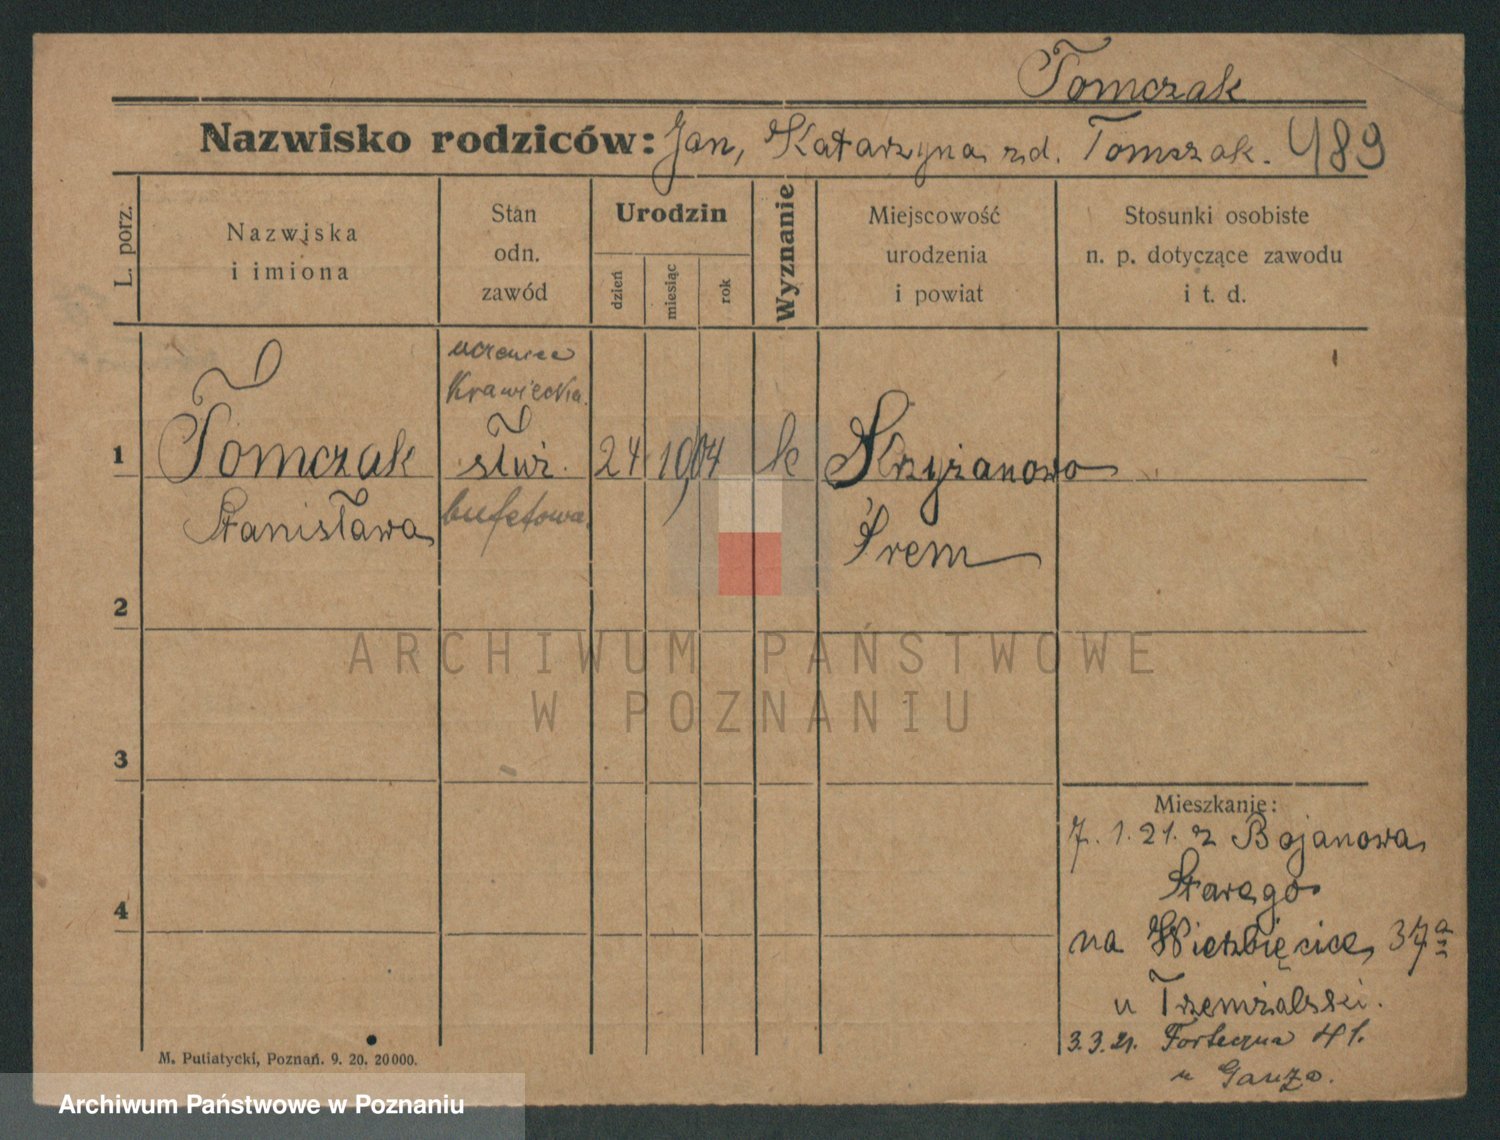 Tomczak
Nazwisko rodziców: Jan, Katarzyna zd. Tomszak. 489
L. porz.
Nazwiska
i imiona
Stan
odn.
zawód
Urodzin
dzień
miesiąc
rok
Wyznanie
Miejscowość
urodzenia
i powiat
Stosunki osobiste
n. p. dotyczące zawodu
i t. d.
1
Tomczak
Stanisława
uczenica
Krawiecka.
służ.
bufetowa.
24
10,04
k
Krzyżanowo
Śrem
2
3
4
Mieszkanie:
7. 1. 21. z Bojanowa
Starego
na Wierzbięcice, 37a
u Trzemżalski.
3.3.21. Forteczna
u
M. Putiatycki, Poznań. 9. 20. 20000.
ARCHIWUM PAŃSTWOWE
W POZNANIU
Archiwum Państwowe w Poznaniu